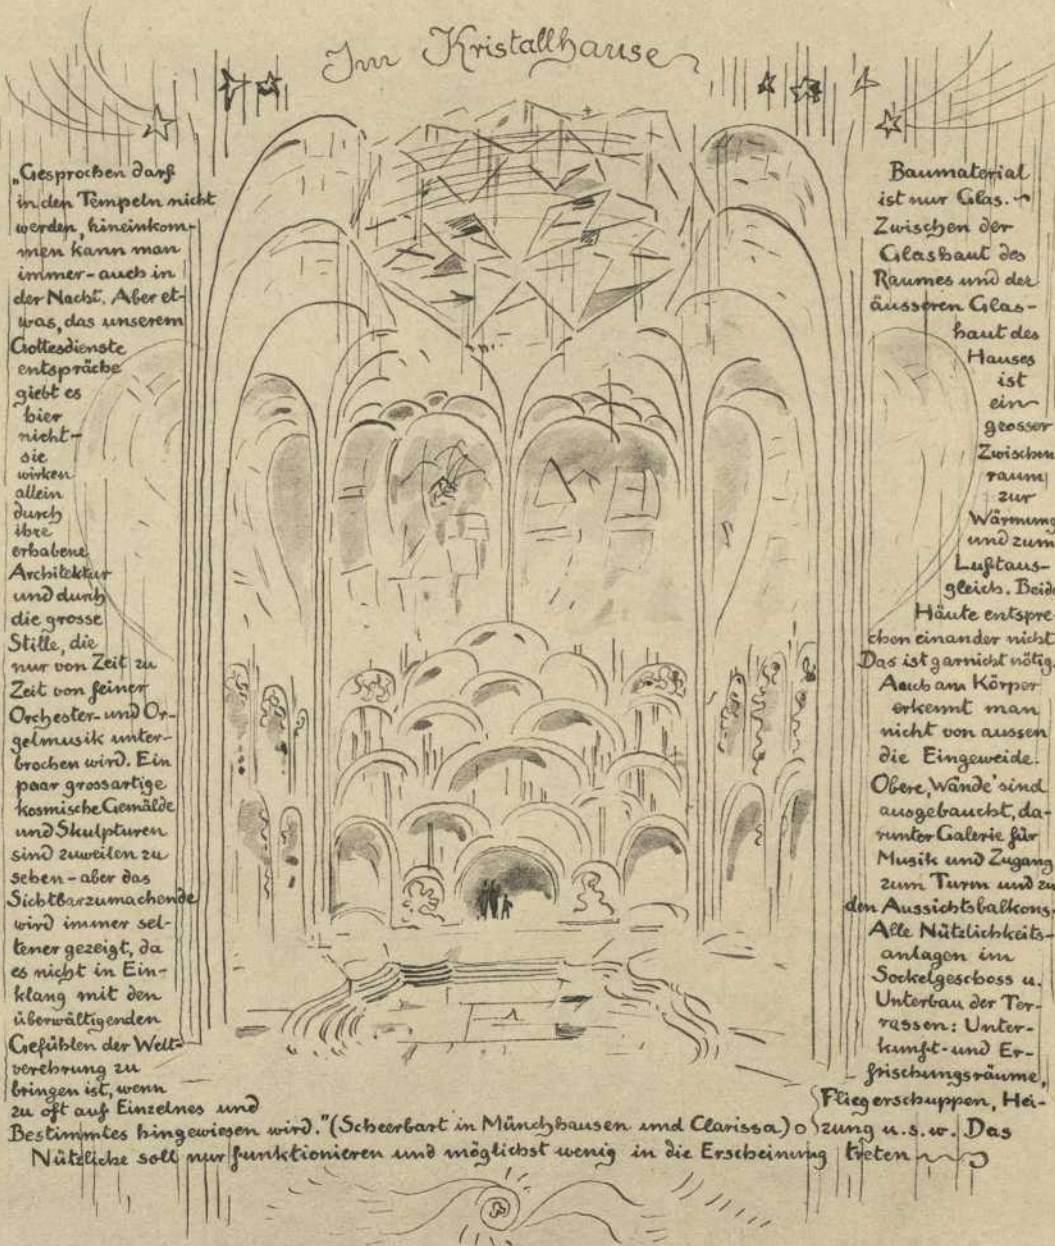 Im Kristallhause
„Gesprochen darf
in den Tempeln nicht
werden, hineinkom-
men kann man
immer - auch in
der Nacht. Aber et-
was, das unserem
Gottesdienste
entspräche
giebt es
hier
nicht -
sie
wirken
allein
durch
ihre
erhabene
Architektur
und durch
die grosse
Stille, die
nur von Zeit zu
Zeit von feiner
Orchester- und Or-
gelmusik unter-
brochen wird. Ein
paar grossartige
kosmische Gemälde
und Skulpturen
sind zuweilen zu
sehen - aber das
Sichtbarzumachende
wird immer sel-
tener gezeigt, da
es nicht in Ein-
klang mit den
überwältigenden
Gefühlen der Welt-
verehrung zu
bringen ist, wenn
zu oft auf Einzelnes und
Bestimmtes hingewiesen wird." (Scheerbart in Münchhausen und Clarissa) o
Baumaterial
ist nur Glas. -
Zwischen der
Glashaut des
Raumes und der
äusseren Glas-
haut des
Hauses
ist
ein
grosser
Zwischen
raum
zur
Wärmung
und zum
Luftaus-
gleich. Beide
Häute entspre-
chen einander nicht.
Das ist garnicht nötig.
Auch am Körper
erkennt man
nicht von aussen
die Eingeweide.
Obere ‚Wände' sind
ausgebaucht, da-
runter Galerie für
Musik und Zugang
zum Turm und zu
den Aussichtsbalkons.
Alle Nützlichkeits-
anlagen im
Sockelgeschoss u.
Unterbau der Ter-
rassen: Unter-
kunft- und Er-
frischungsräume,
Fliegerschuppen, Hei-
zung u.s.w. Das
Nützliche soll nur funktionieren und möglichst wenig in die Erscheinung treten